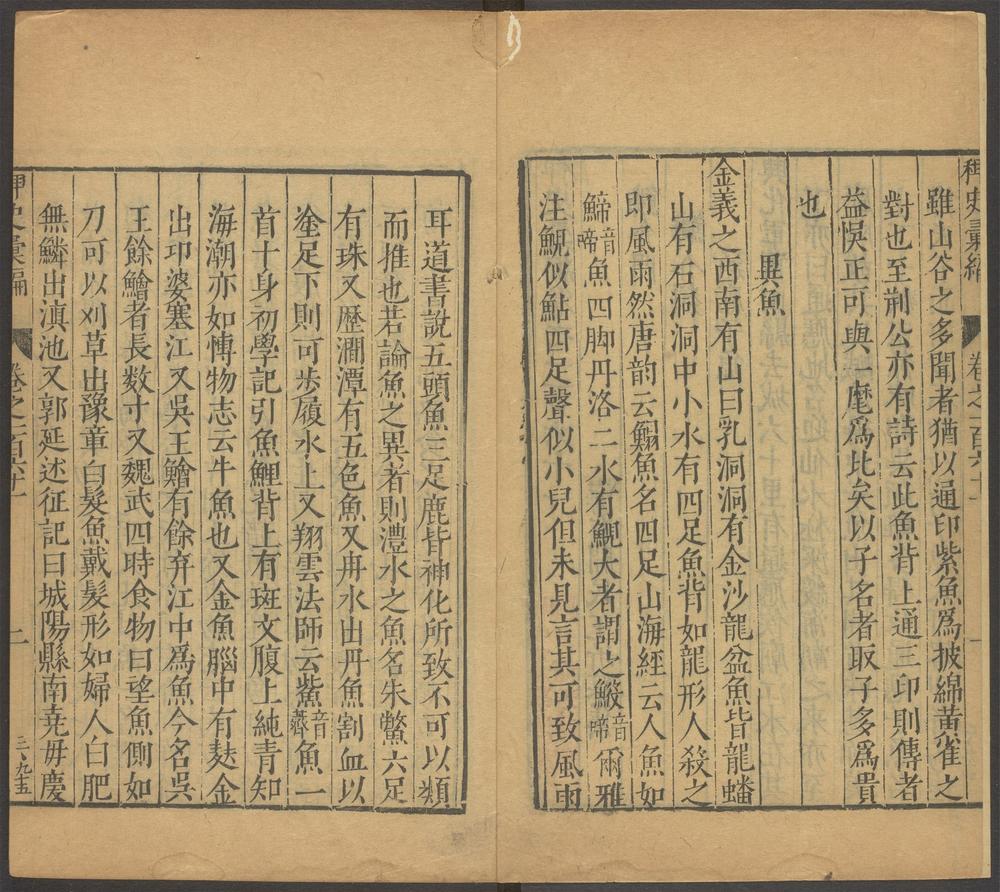 稗史彙編
卷之一百六十一
一
雖山谷之多聞者猶以通印紫魚爲披綿黄雀之
對也至荆公亦有詩云此魚背上通三印則傳者
益悞正可與一麾爲比矣以子名者取子多爲貴
也
異魚
金義之西南有山曰乳洞洞有金沙龍盆魚皆龍蟠
山有石洞洞中小水有四足魚背如龍形人殺之
即風雨然唐韵云鰨魚名四足山海經云人魚如
鯑音啼魚四脚丹洛二水有鯢大者謂之鰀音啼爾雅
注鯢似鮎四足聲似小兒但未見言其可致風雨
耳道書說五頭魚三足鹿皆神化所致不可以類
而推也若論魚之異者則澧水之魚名朱鱉六足
有珠又歷澗潭有五色魚又丹水出丹魚割血以
塗足下則可步履水上又翔雲法師云鮆音薺魚一
首十身初學記引魚鯉背上有斑文腹上純青知
海潮亦如博物志云牛魚也又金魚腦中有麩金
出印婆塞江又吳王鱠有餘弃江中爲魚今名吳
王餘鱠者長数寸又魏武四時食物曰望魚側如
刀可以刈草出豫章白髮魚戴髮形如婦人白肥
無鱗出滇池又郭延述征記曰城陽縣南堯毋慶
稗史彙編
卷之一百六十一
二
三、九五